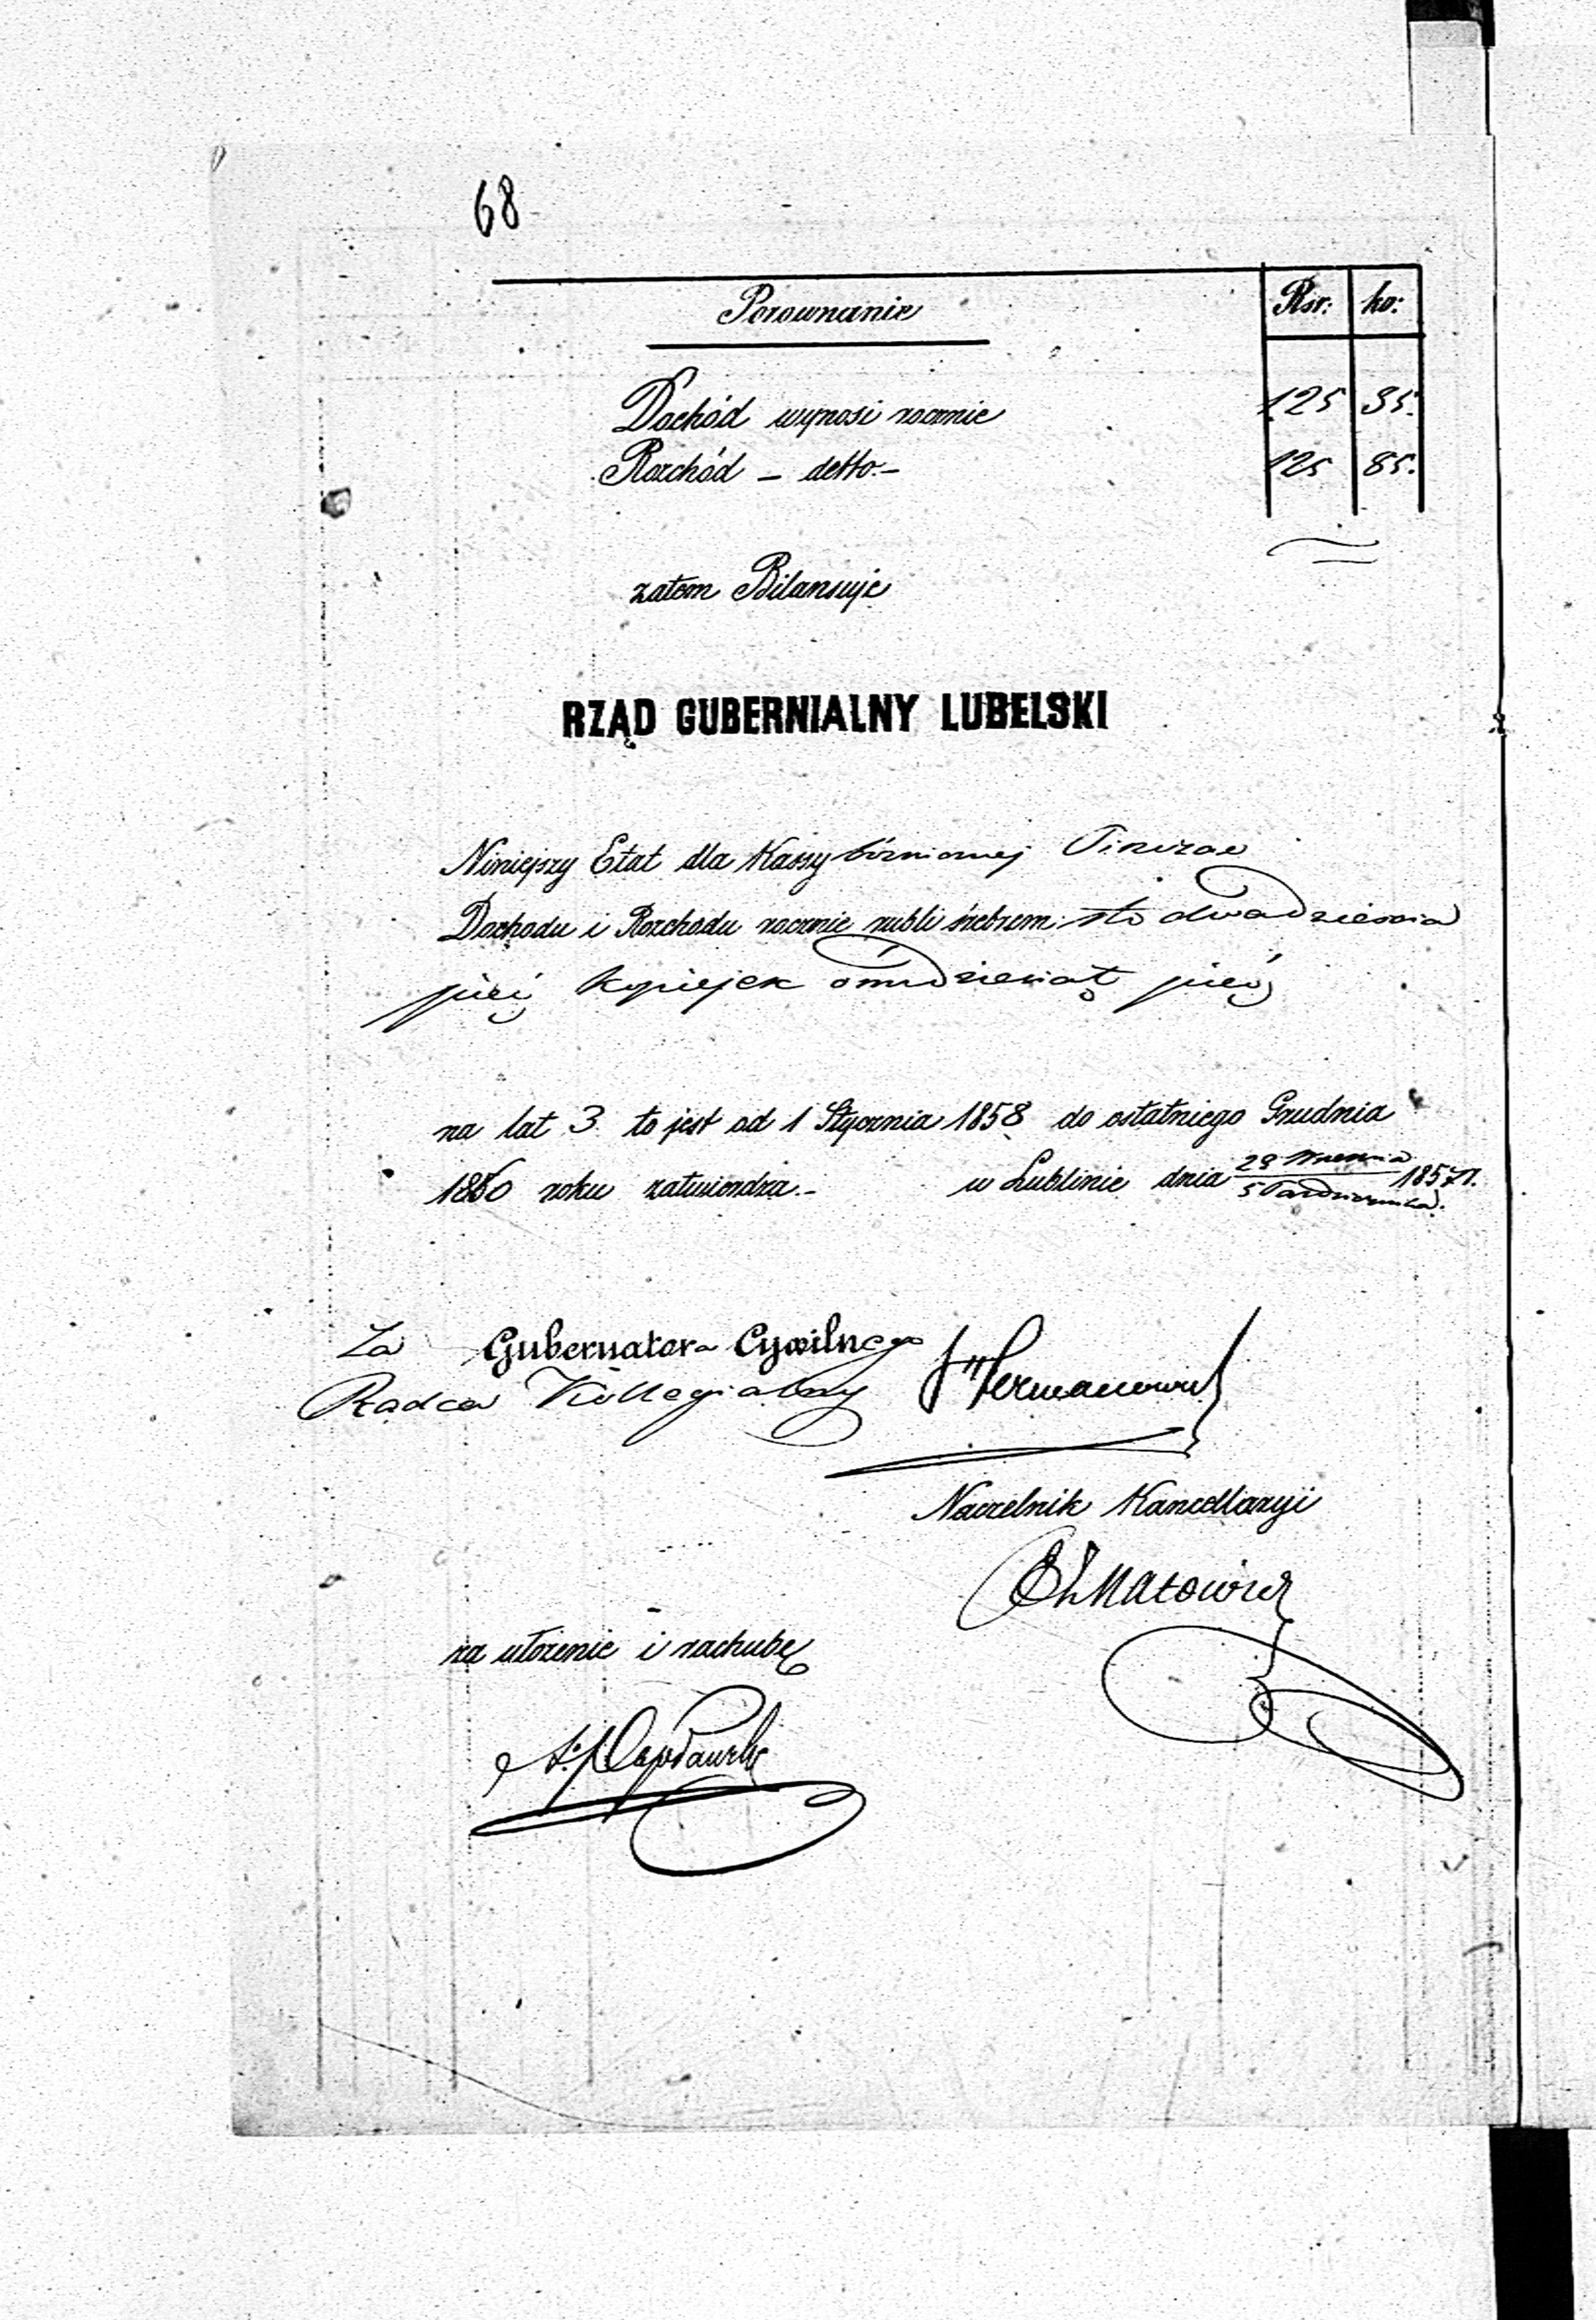 68
Porownanie Rsr: ko:
Dochód wynosi rocznie 125 85.
Rozchód – detto.– 125 85.
zatem Bilansuje
RZĄD GUBERNIALNY LUBELSKI
Niniejszy Etat dla Kassy bóżniczney
Dochodu i Rozchodu rocznie rubli srebrem sto dwadzieścia
pięć kopiejek ośmdziesiąt pięć
na lat 3 to jest od 1 Stycznia 1858 do ostatniego Grudnia
1860 roku zatwierdza.– w Lublinie dnia 23 Września / 5 Października 1857 r.
Za Gubernatora Cywilnego
Radca Kollegialny
Naczelnik Kancellaryi
za ułożenie i rachubę